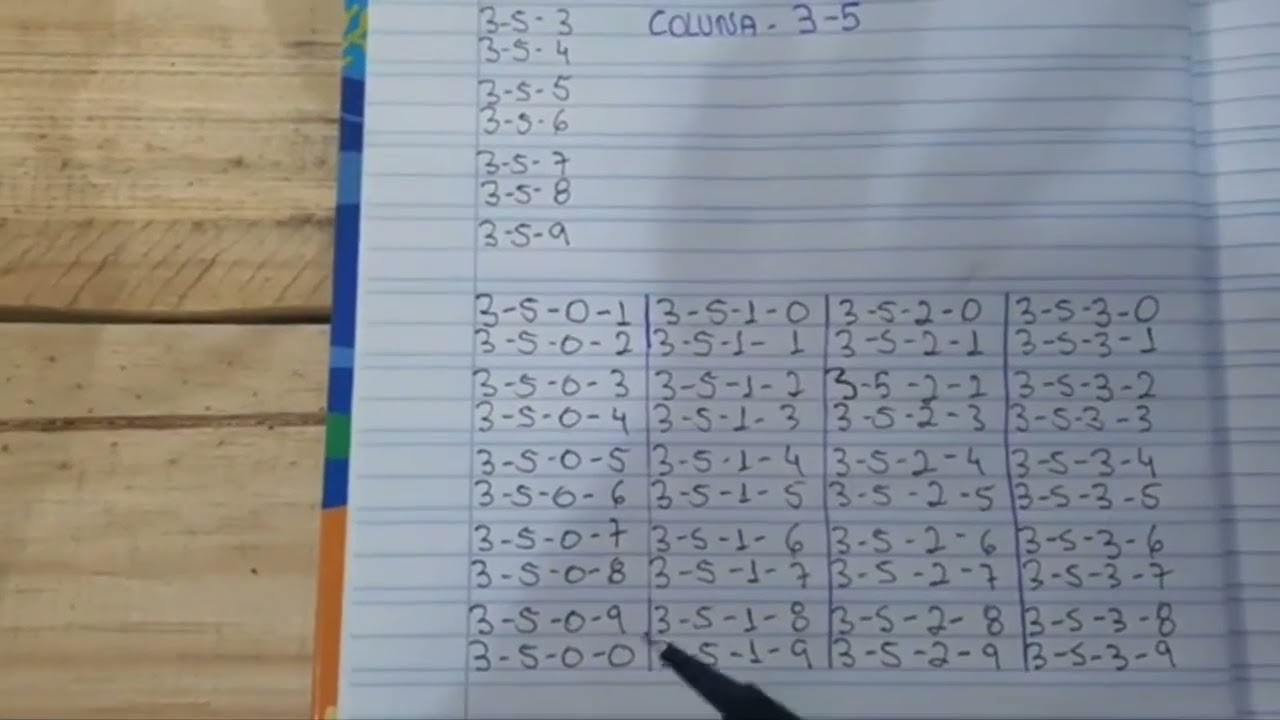 3-5-3 COLUNA - 3-5
3-5-4
3-5-5
3-5-6
3-5-7
3-5-8
3-5-9
3-5-0-1 3-5-1-0 3-5-2-0 3-5-3-0
3-5-0-2 3-5-1-1 3-5-2-1 3-5-3-1
3-5-0-3 3-5-1-2 3-5-2-2 3-5-3-2
3-5-0-4 3-5-1-3 3-5-2-3 3-5-3-3
3-5-0-5 3-5-1-4 3-5-2-4 3-5-3-4
3-5-0-6 3-5-1-5 3-5-2-5 3-5-3-5
3-5-0-7 3-5-1-6 3-5-2-6 3-5-3-6
3-5-0-8 3-5-1-7 3-5-2-7 3-5-3-7
3-5-0-9 3-5-1-8 3-5-2-8 3-5-3-8
3-5-0-0 3-5-1-9 3-5-2-9 3-5-3-9